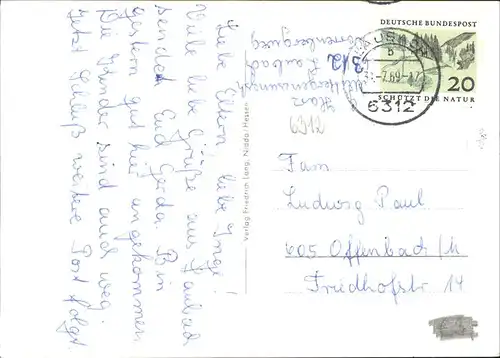 Liebe Eltern, liebe Inge!
Viele liebe Grüße aus Laubach
sendet Euch Gerda. Bin
gestern gut hier angekommen
Die Kinder sind auch weg.
Jetzt Schluß weitere Post folgt
Verlag Friedrich Lang, Nidda/Hessen
312 Laubach
6312
DEUTSCHE BUNDESPOST
20
SCHÜTZT DIE NATUR
LAUBACH
B
-7.69-17
6312
Fam
Ludwig Paul
605 Offenbach/M
Friedhofstr 14